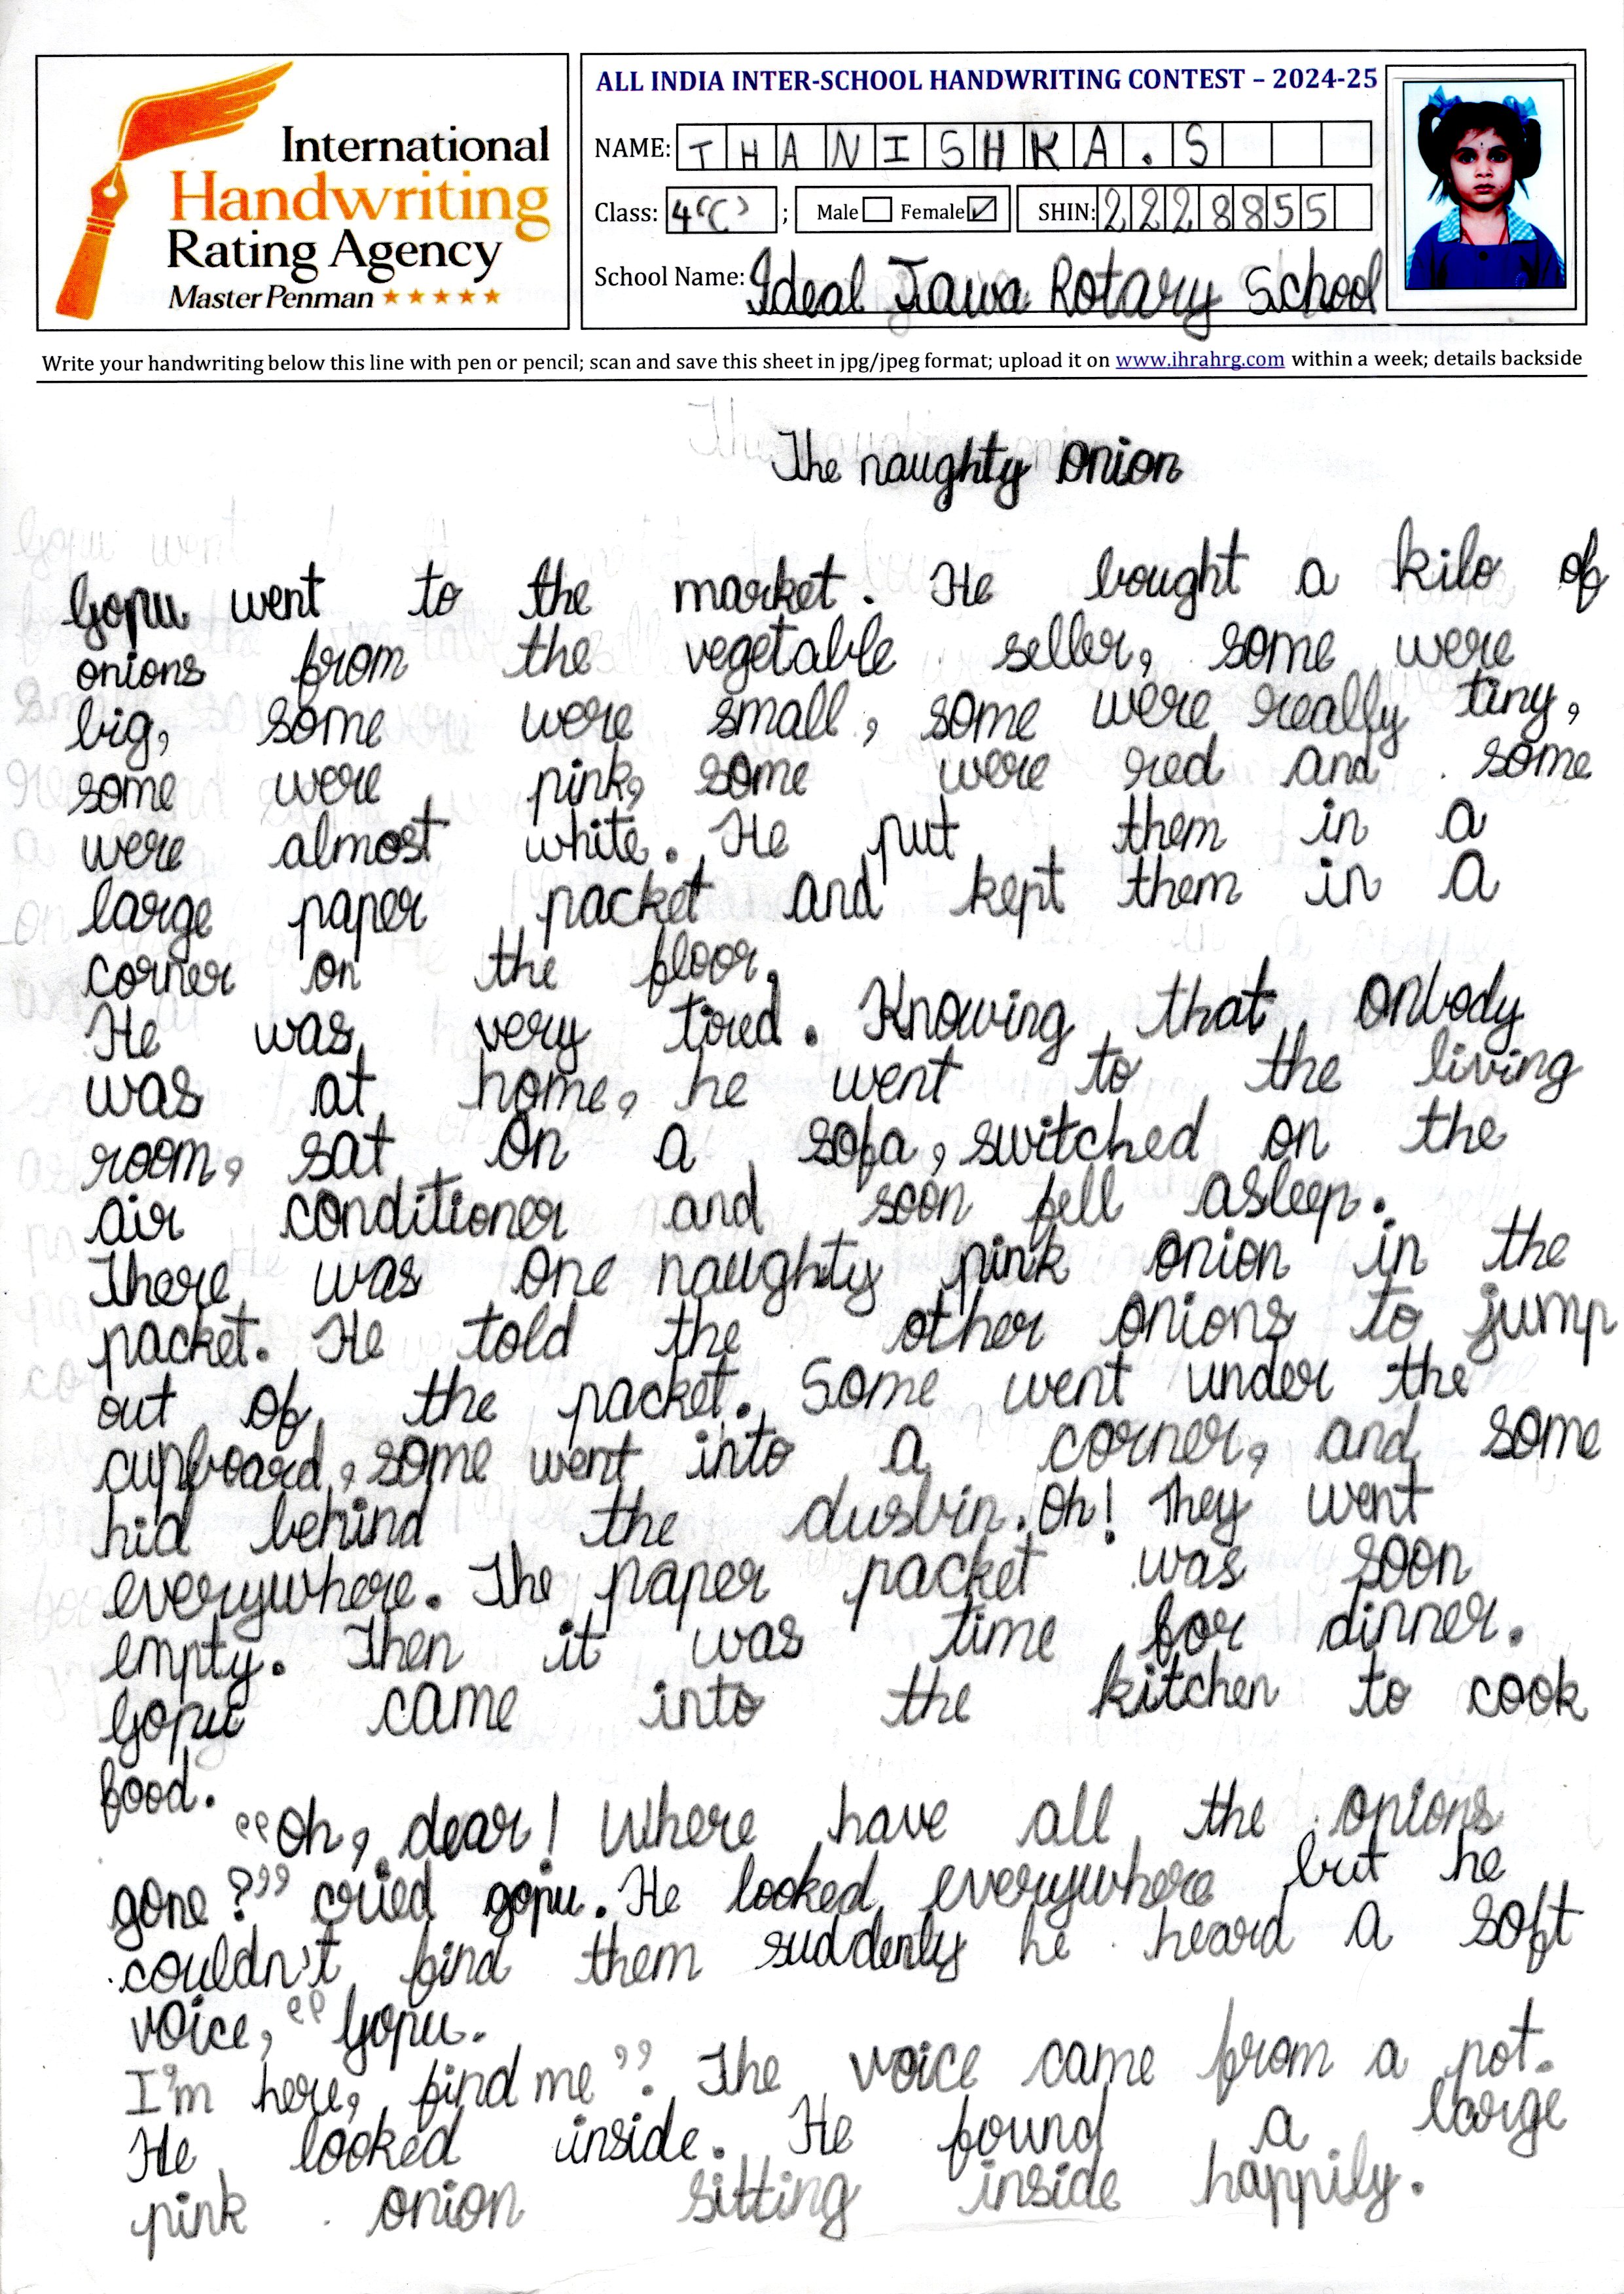 International
Handwriting
Rating Agency
Master Penman
ALL INDIA INTER-SCHOOL HANDWRITING CONTEST – 2024-25
NAME: THANISHKA.S
Class: 4"C"; Male Female SHIN: 2228855
School Name: Ideal Jawa Rotary School
Write your handwriting below this line with pen or pencil; scan and save this sheet in jpg/jpeg format; upload it on www.ihrahrg.com within a week; details backside
The naughty onion
Gopu went to the market. He bought a kilo of
onions from the vegetable seller, some were
big, some were small, some were really tiny,
some were pink, some were red and some
were almost white. He put them in a
large paper packet and kept them in a
corner on the floor.
He was very tired. Knowing that onbody
was at home, he went to the living
room, sat on a sofa, switched on the
air conditioner and soon fell asleep.
There was one naughty pink onion in the
packet. He told the other onions to jump
out of the packet. Some went under the
cupboard, some went into a corner, and some
hid behind the dusbin. Oh! They went
everywhere. The paper packet was soon
empty. Then it was time for dinner.
Gopu came into the kitchen to cook
food.
"Oh, dear! Where have all the onions
gone?" cried gopu. He looked everywhere but he
couldn't find them suddenly he heard a soft
voice, "Gopu.
I'm here, find me". The voice came from a pot.
He looked inside. He found a large
pink onion sitting inside happily.